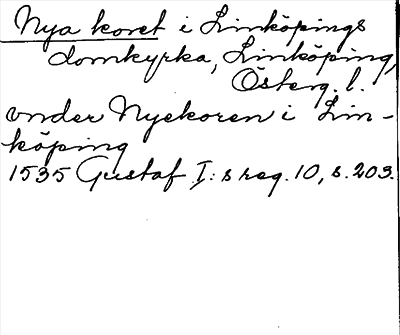 Nya koret i Linköpings
domkyrka, Linköping,
Österg. l.
vnder Nyekoren i Lin-
köping
1535 Gustaf I:s reg. 10, s. 203.